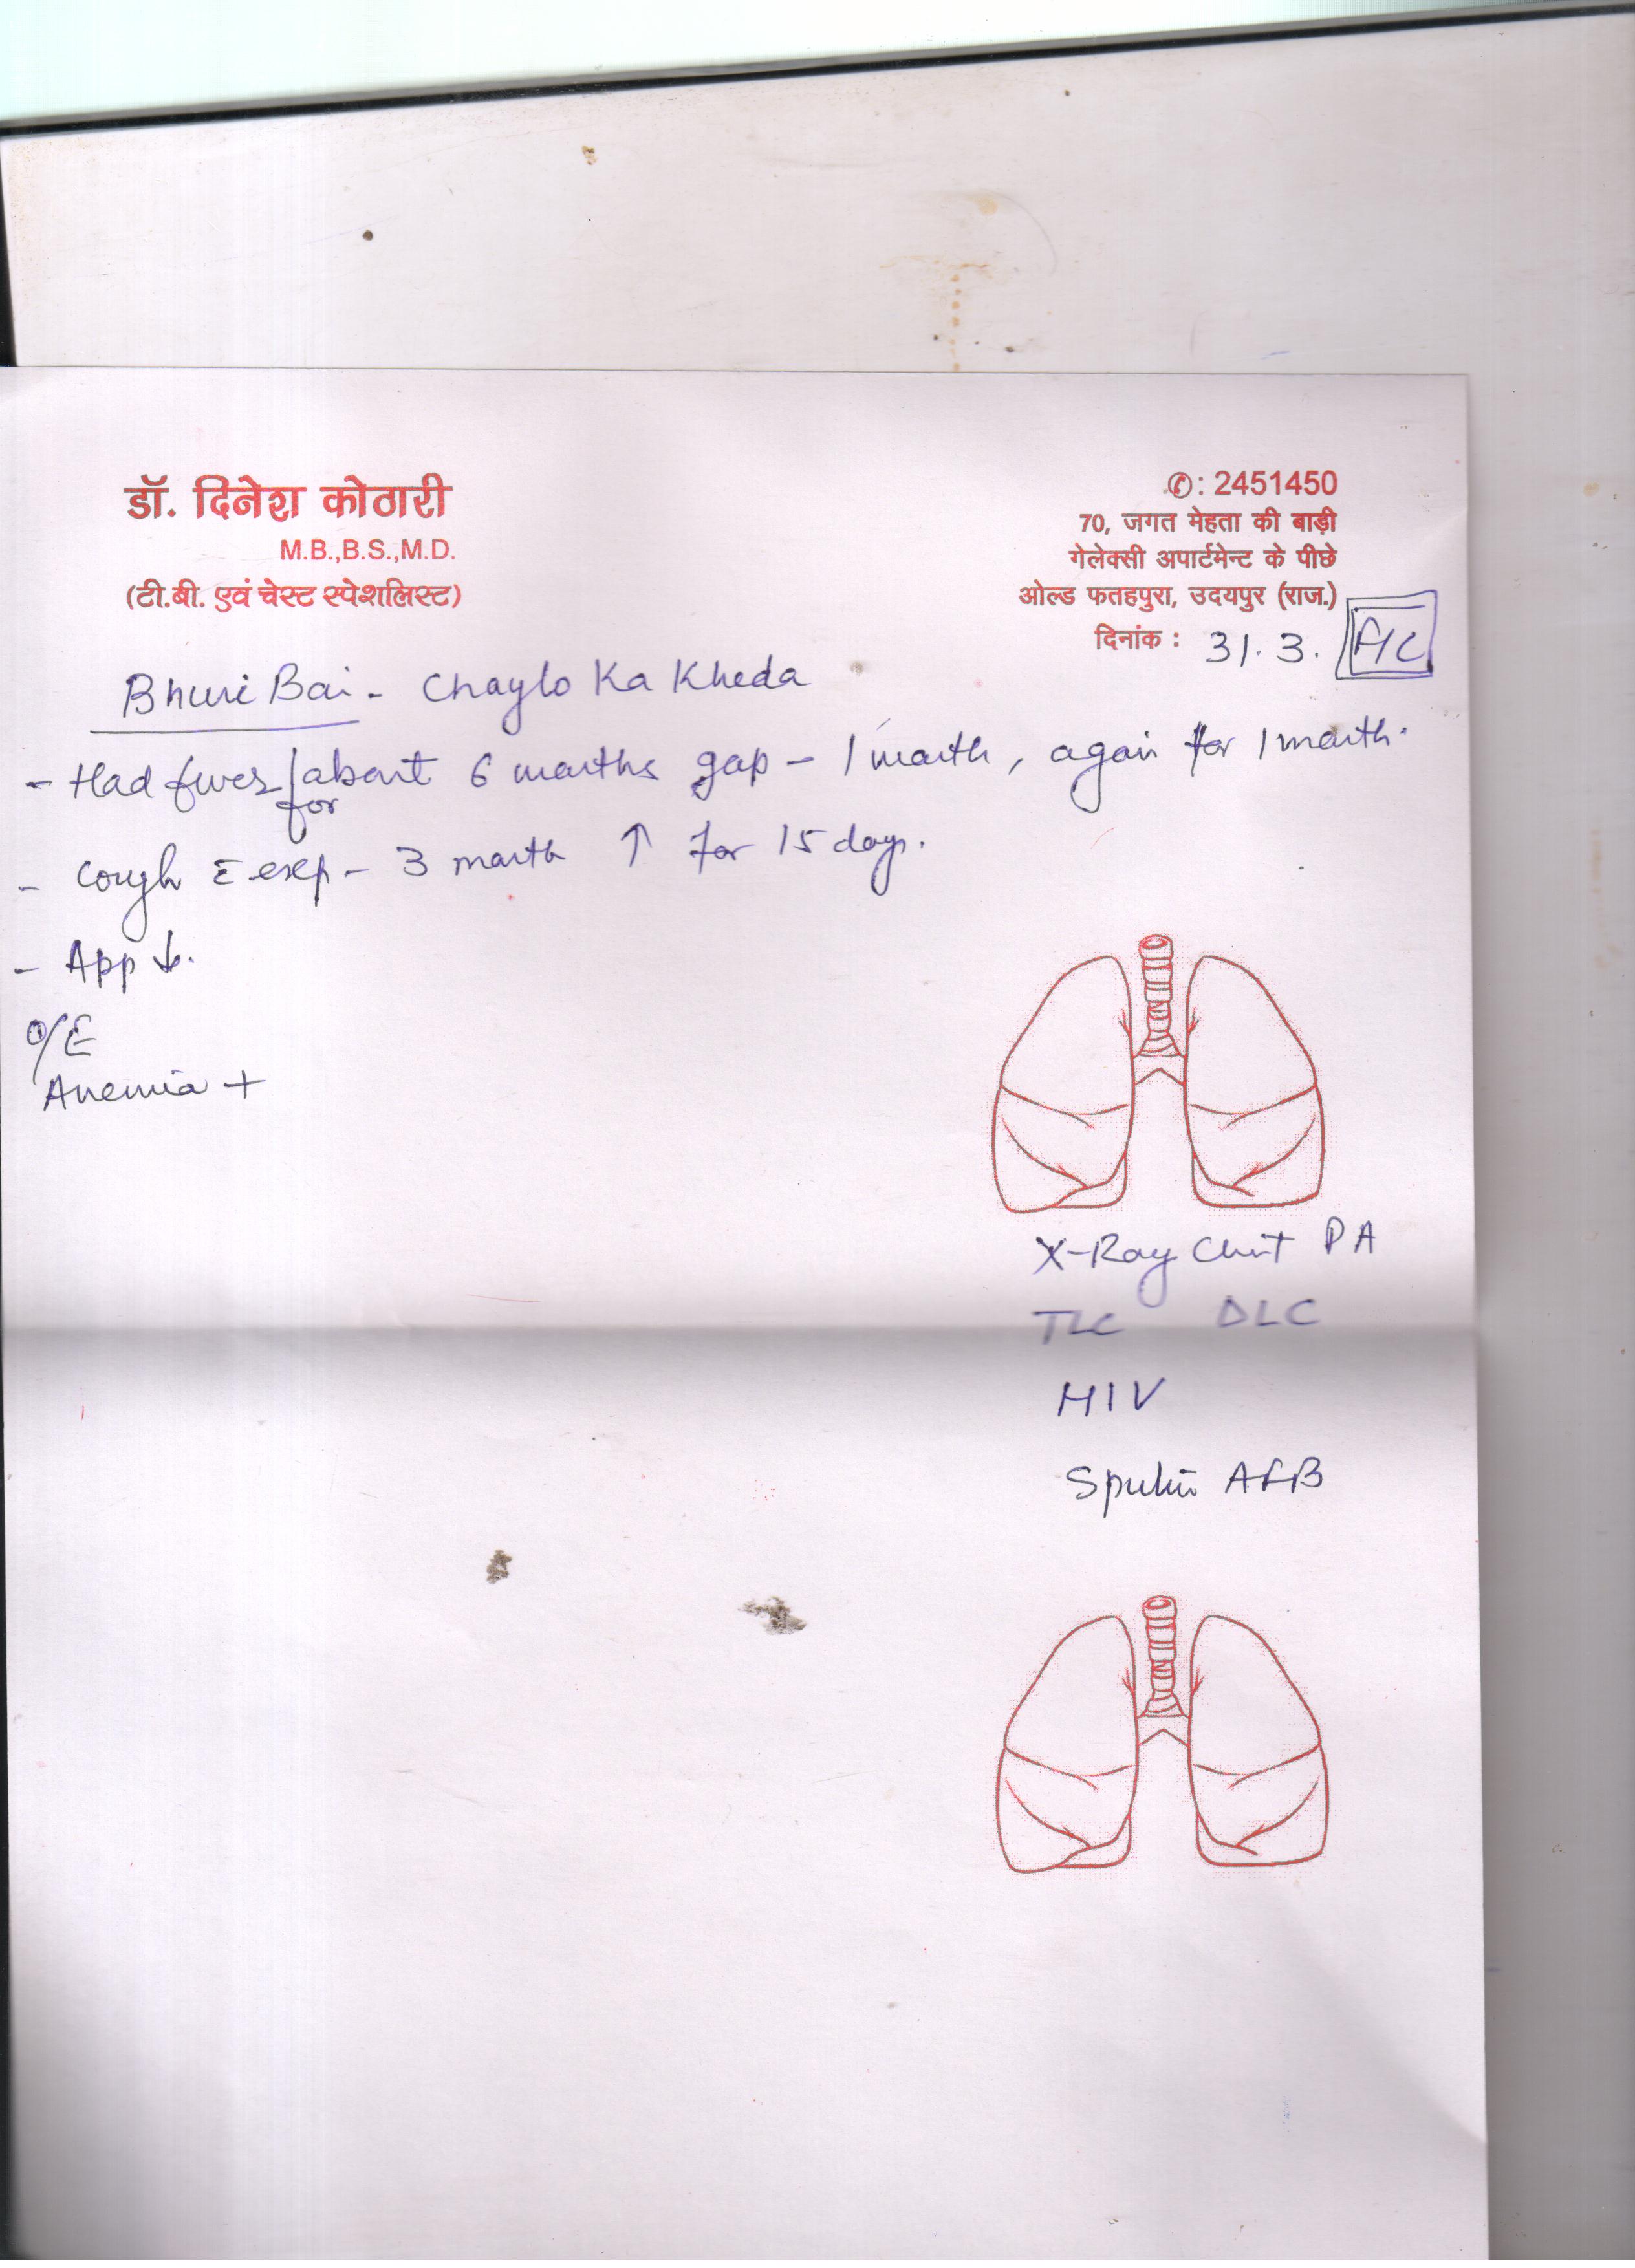 डॉ. दिनेश कोठारी
M.B.,B.S.,M.D.
(टी.बी. एवं चेस्ट स्पेशलिस्ट)
✆: 2451450
70, जगत मेहता की बाड़ी
गेलेक्सी अपार्टमेन्ट के पीछे
ओल्ड फतहपुरा, उदयपुर (राज.)
दिनांक : 31.3.
Bhuri Bai - Chaylo Ka Kheda
- Had fever for about 6 months gap - 1 month, again for 1 month.
- Cough c̄ exp - 3 month ↑ for 15 days.
- App ↓.
O/E
Anemia +
X-Ray Chest PA
TLC DLC
HIV
Sputum AFB